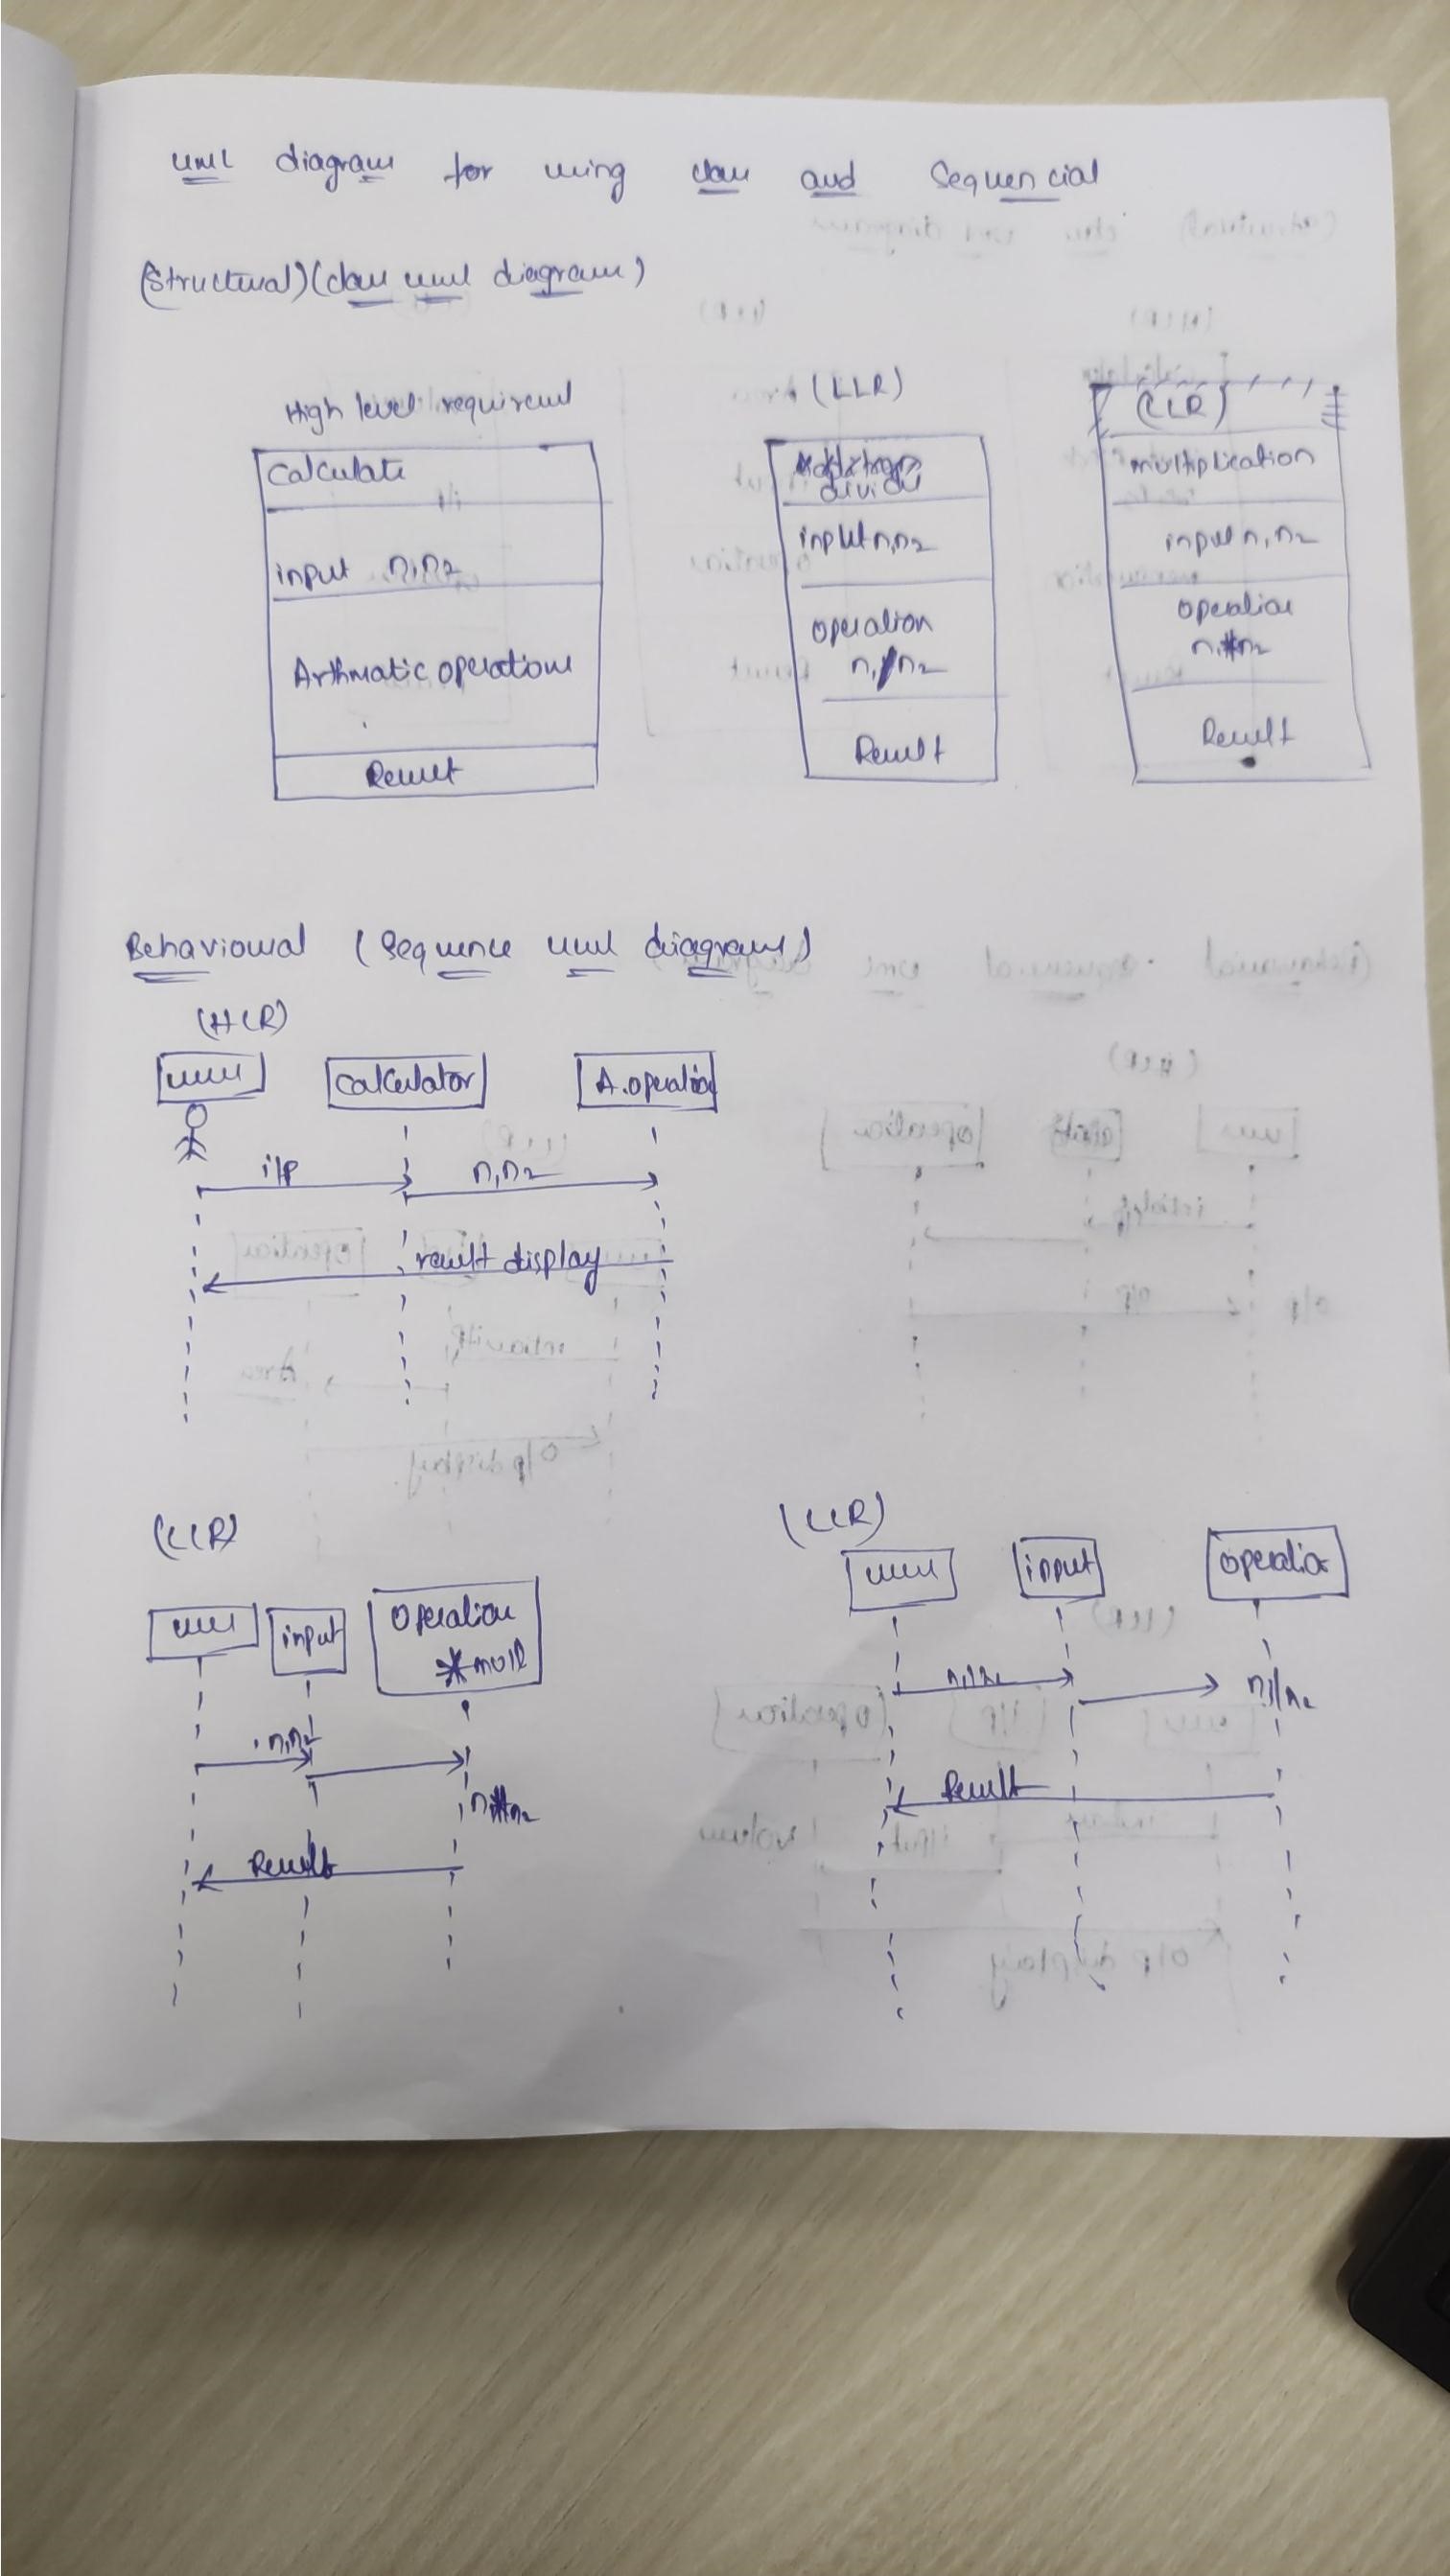 uml diagram for using class and Sequencial
(Structural) (class uml diagram)
High level requirement
Calculate
input n1,n2
Arthmatic operations
Result
(LLR)
divide
input n1,n2
operation
n1/n2
Result
(LLR)
multiplication
input n1,n2
operation
n1*n2
Result
Behavioural (Sequence uml diagram)
(HLR)
user
Calculator
A.operation
i/p
n1,n2
result display
(LLR)
user
input
Operation
* mul
n1,n2
n1*n2
Result
(LLR)
user
input
operation
n1,n2
n1/n2
Result